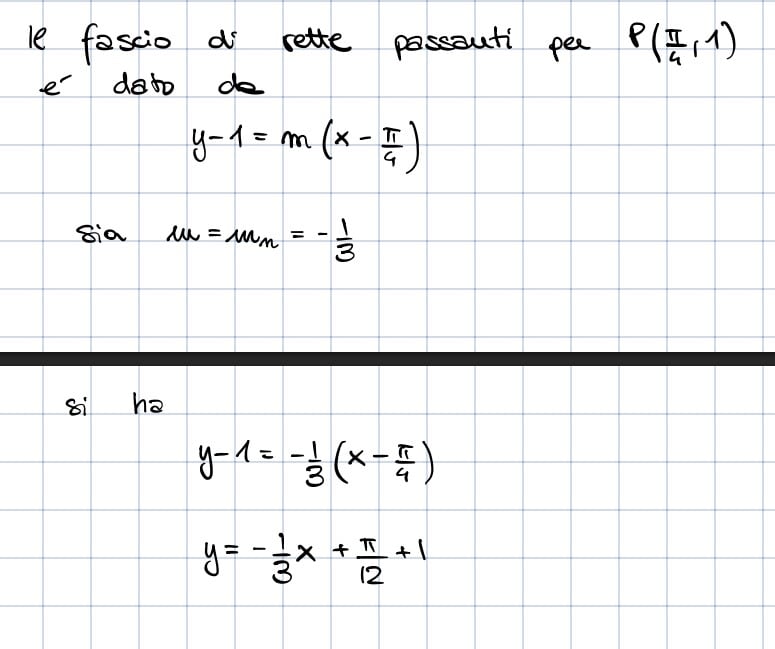 le fascio di rette passanti per P(π/4, 1)
é dato da
y-1 = m (x - π/4)
sia m = mₙ = - 1/3
si ha
y-1 = - 1/3 (x - π/4)
y = - 1/3 x + π/12 + 1